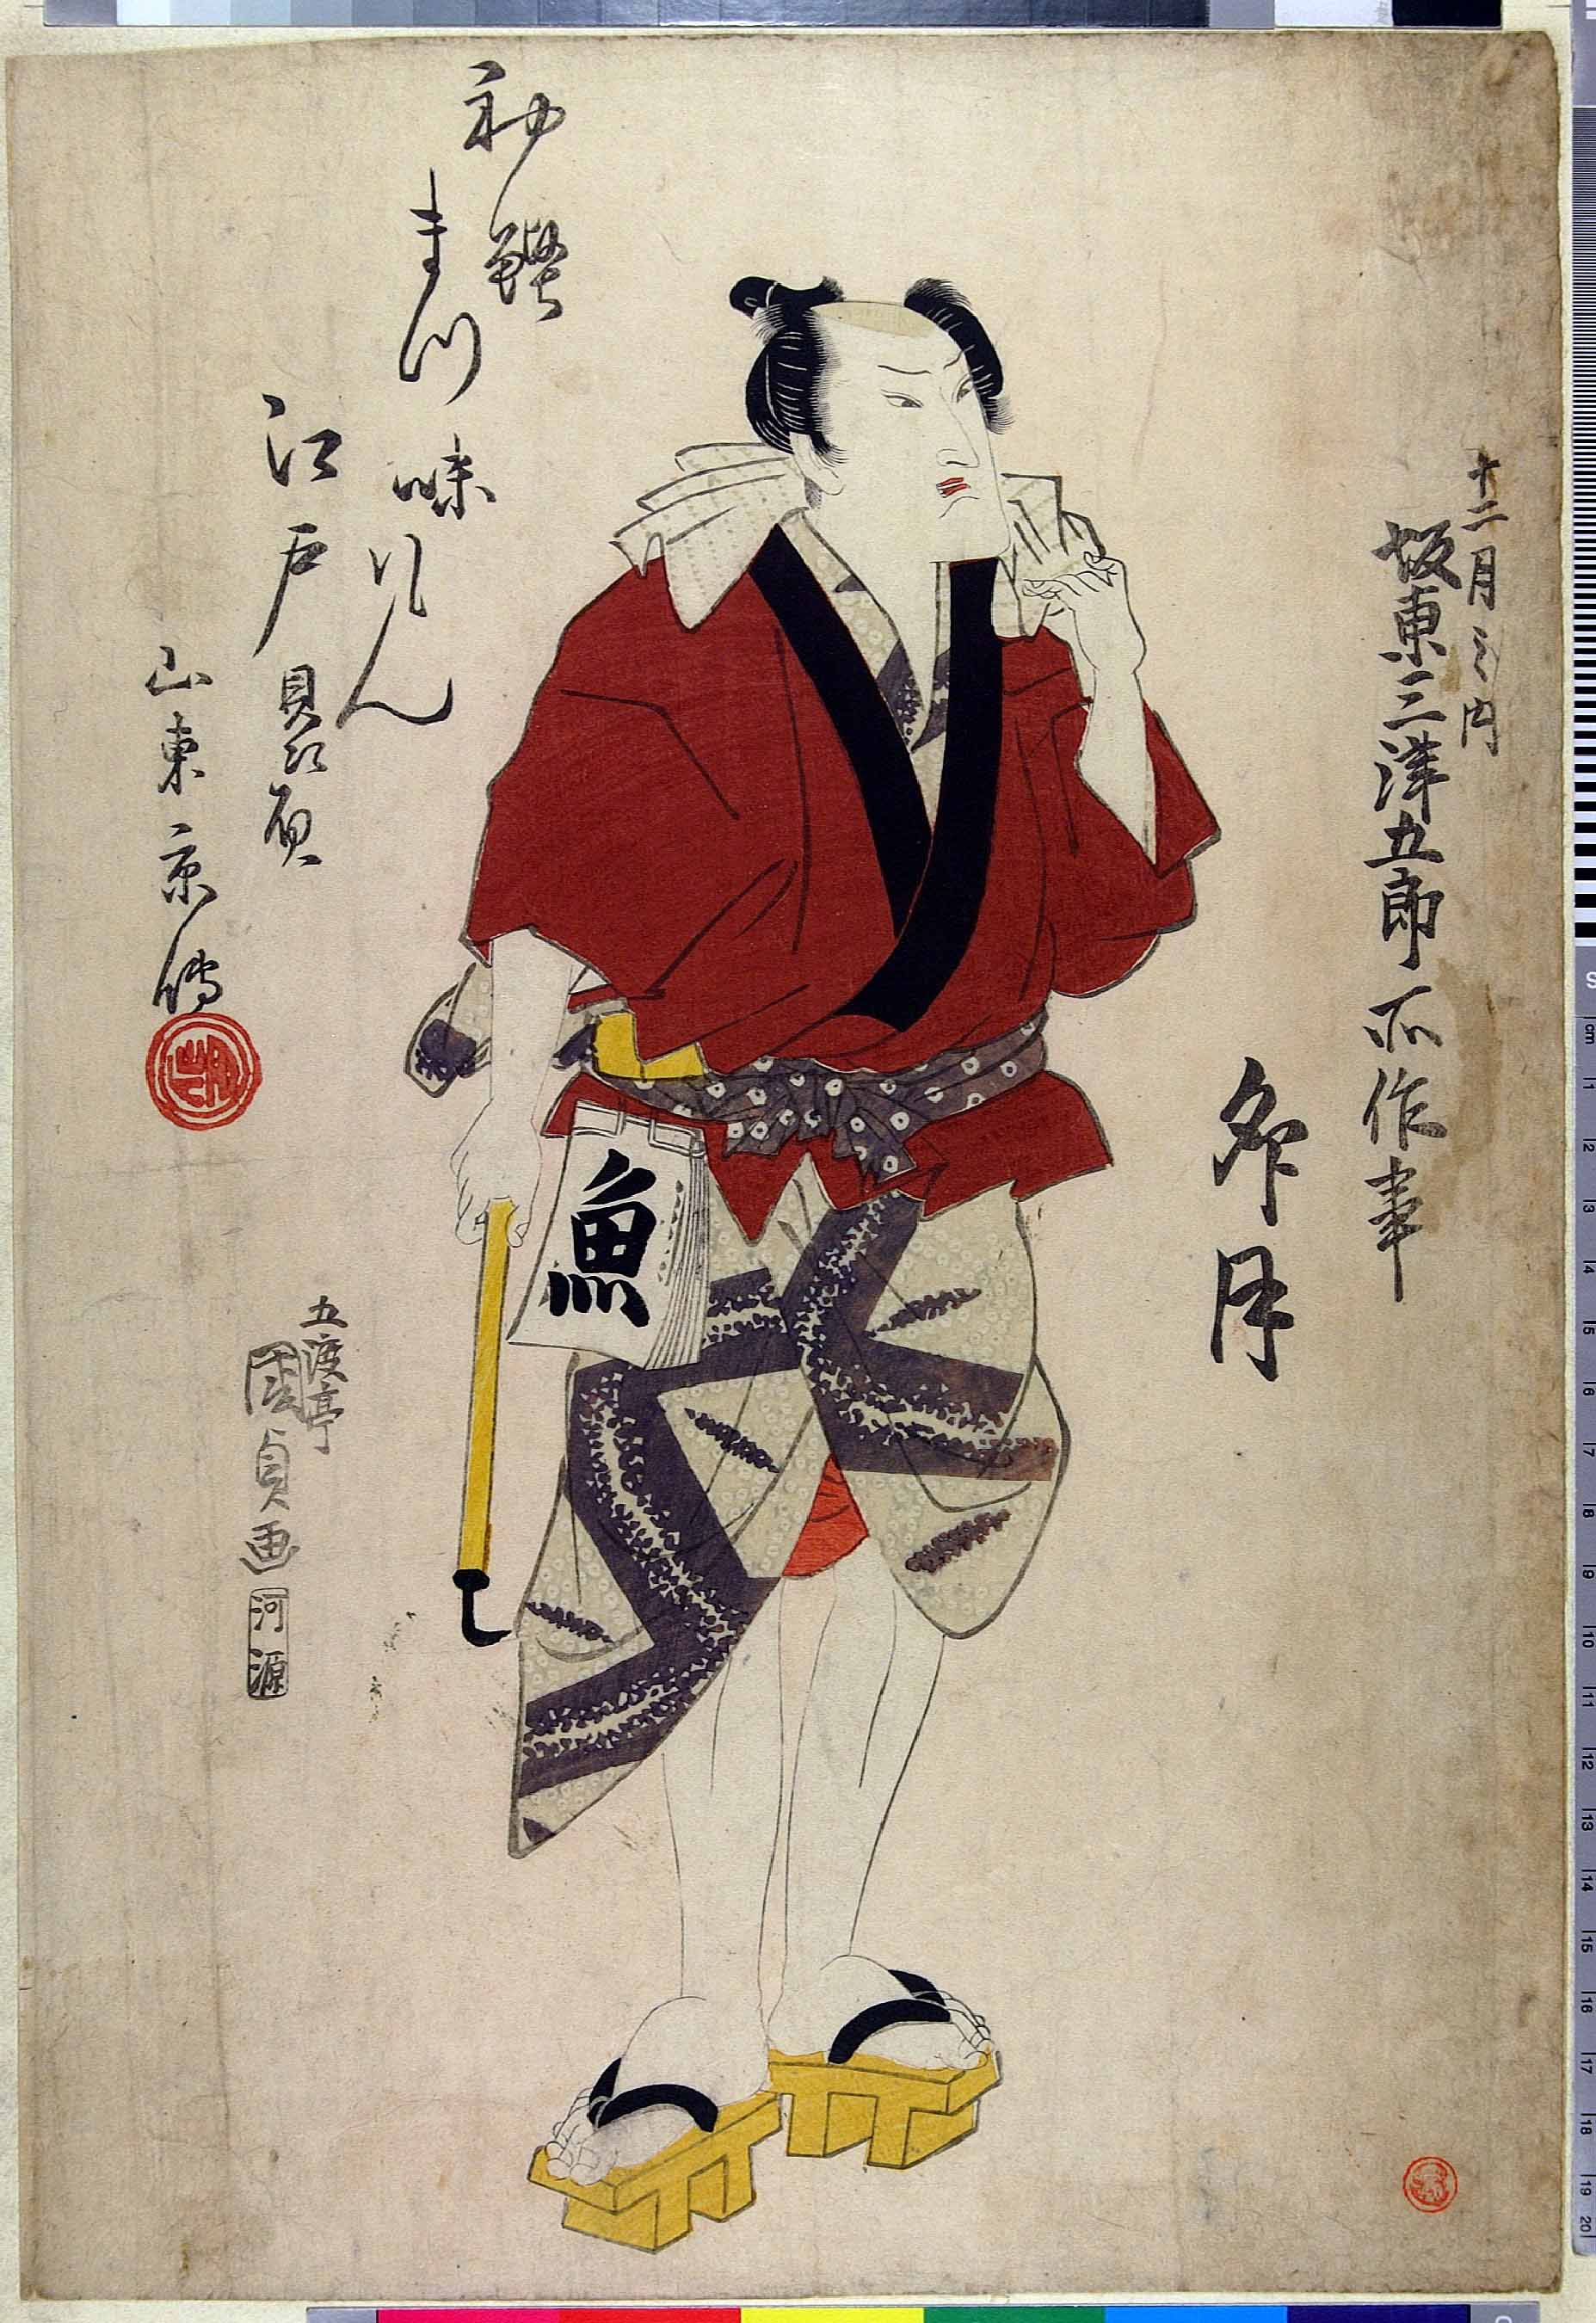 十二月之内
坂東三津五郎所作事
卯月
魚
初鰹
まつ味はん
江戸贔屓
山東京傳
五渡亭
國貞画
河源